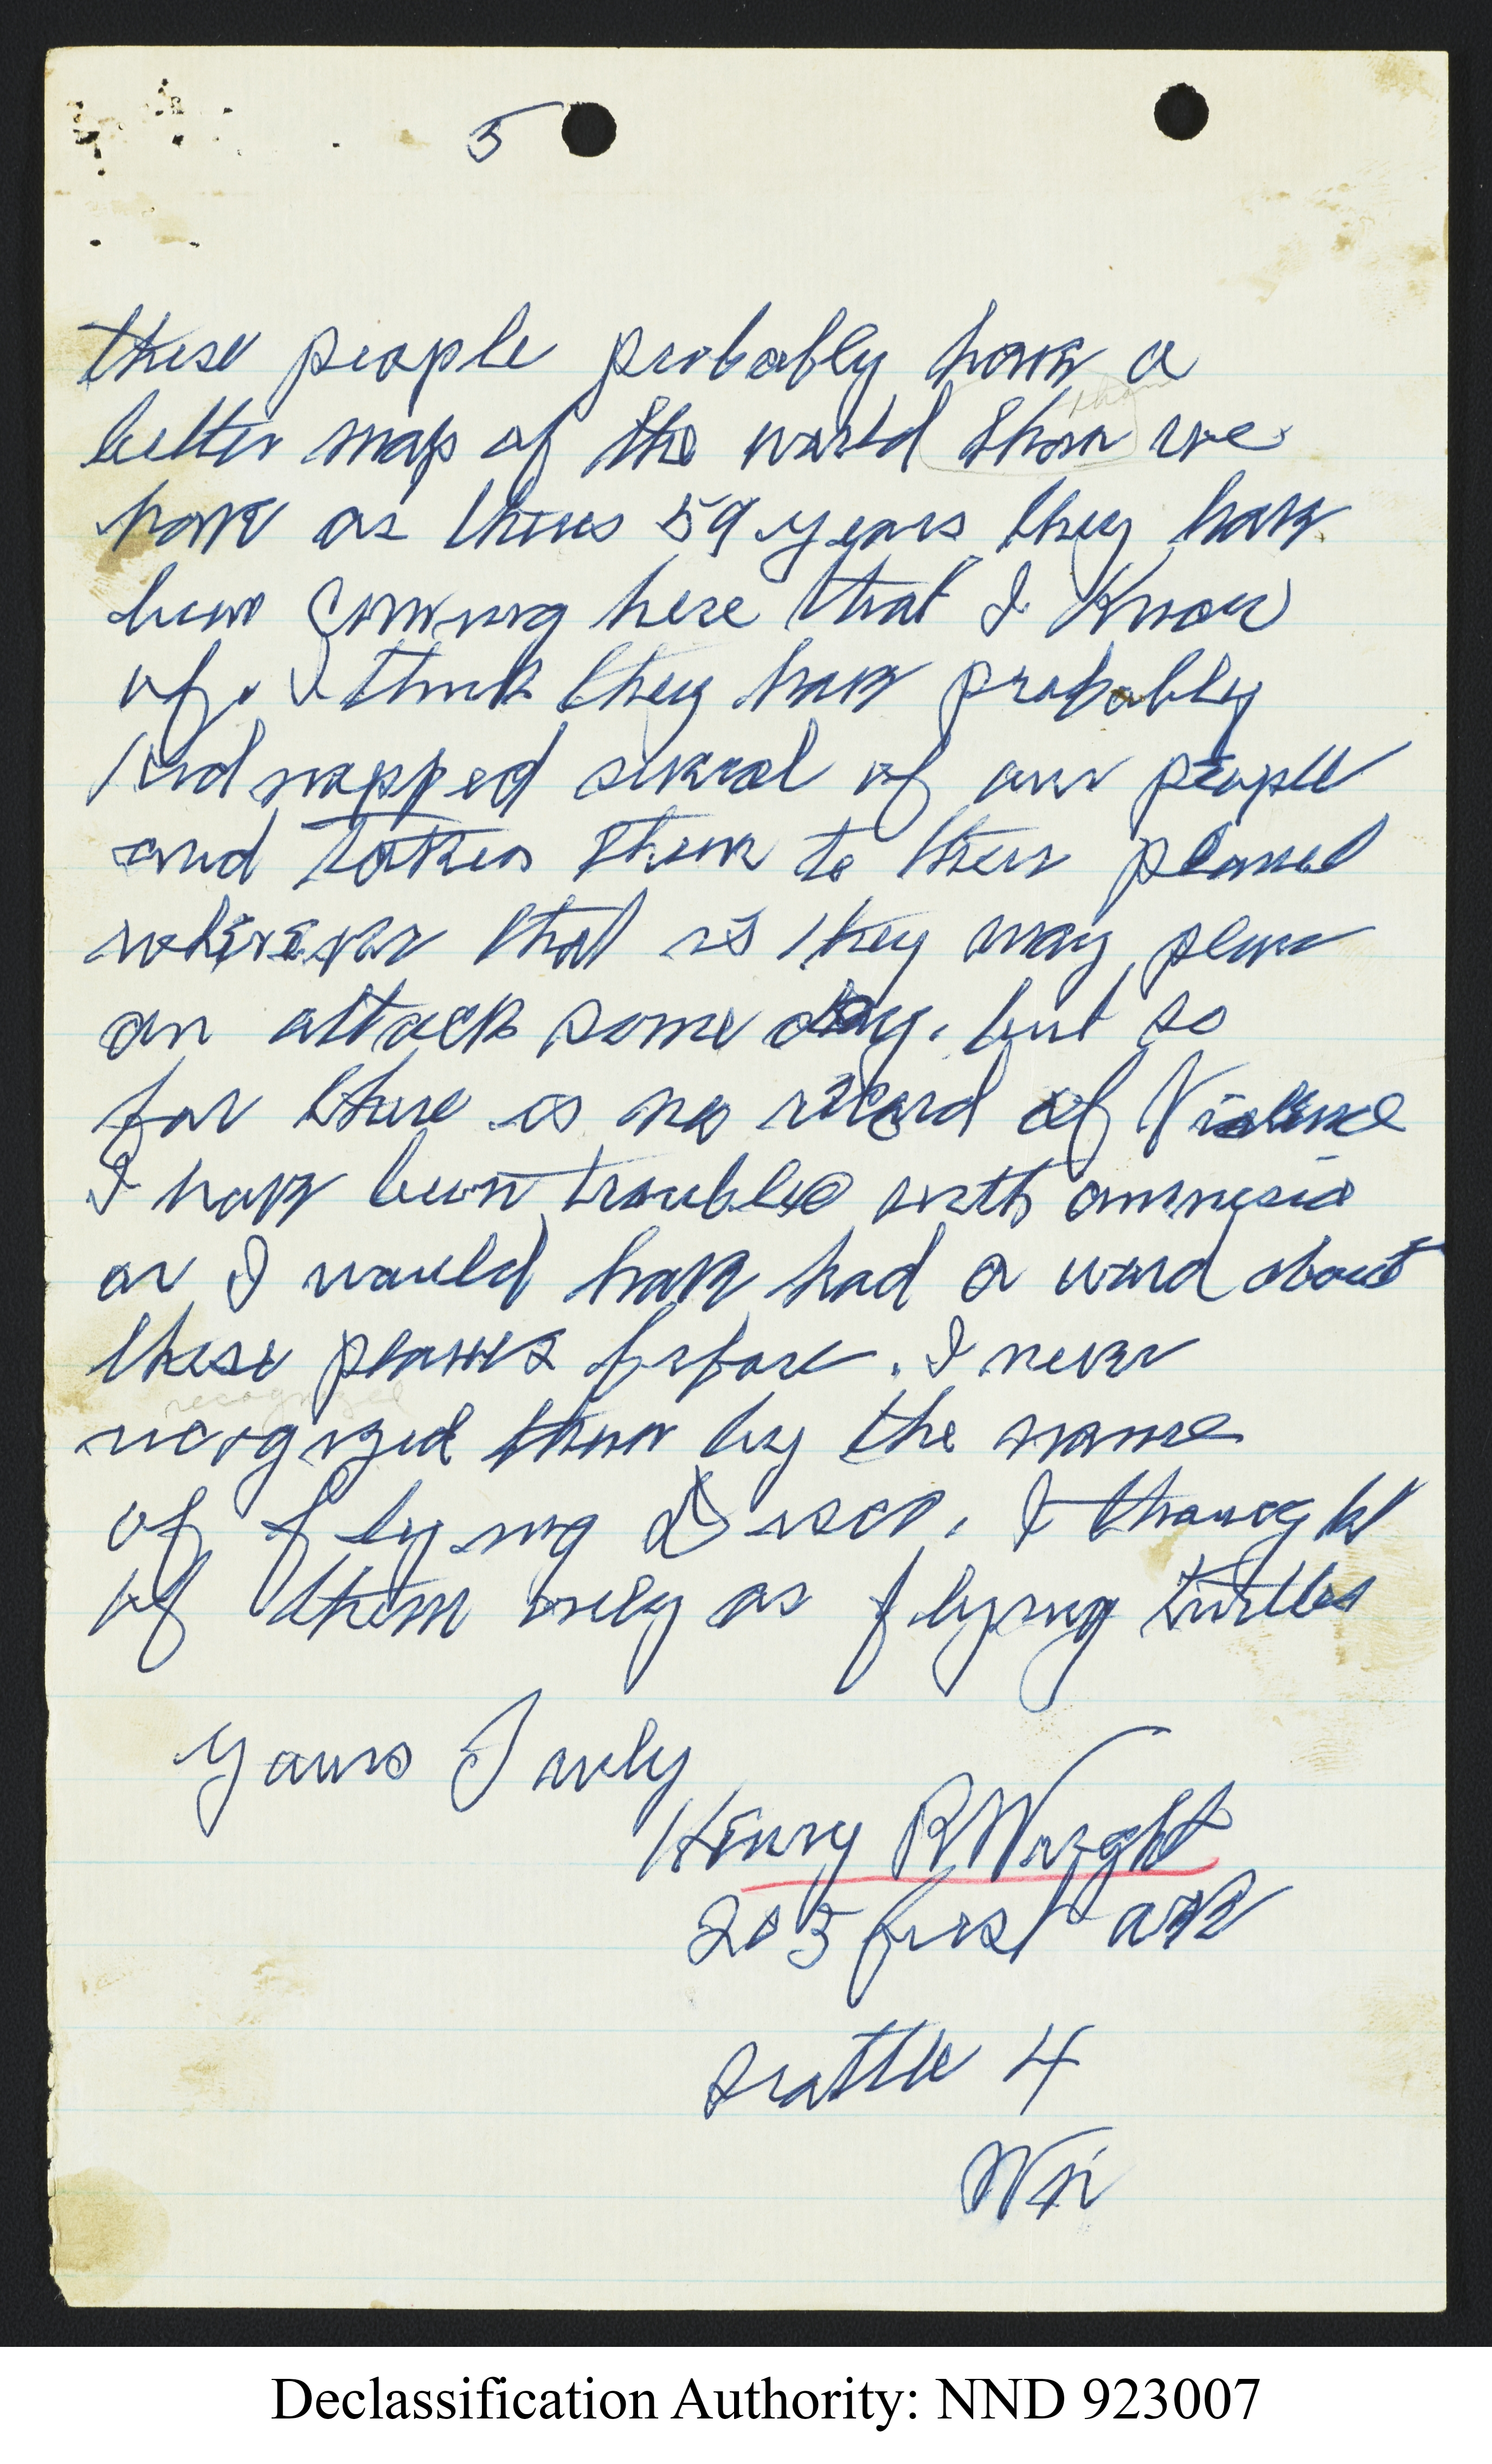 5
these people probably have a
than
better map of the world than we
have as theres 59 years they have
been coming here that I Know
of. I think they have probably
kidnapped several of our people
and taken them to their planet
wherever that is they may plan
an attack some day. but so
far there is no record of Violence
I have been troubled with amnesia
or I would have had a word about
these planes before. I never
recognized
recognized them by the name
of flying Discs. I thought
of them only as flying turtles
Yours Truly
Henry R Wright
205 first ave
Seattle 4
Wn
Declassification Authority: NND 923007